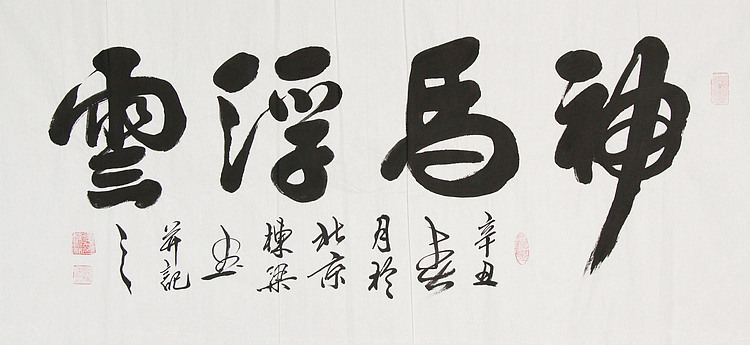 神馬浮雲
辛丑
春
月於
北京
棟梁
書
并記
之